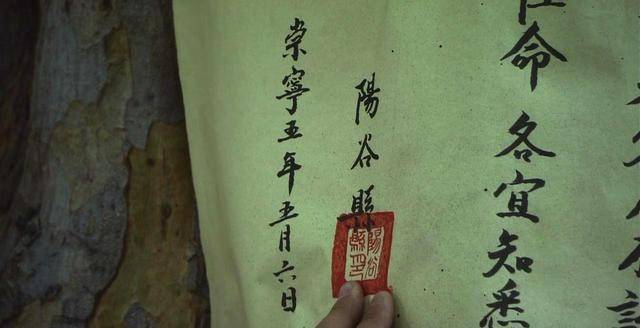 任命各宜知悉
陽谷縣
陽谷
縣印
崇寧五年五月六日